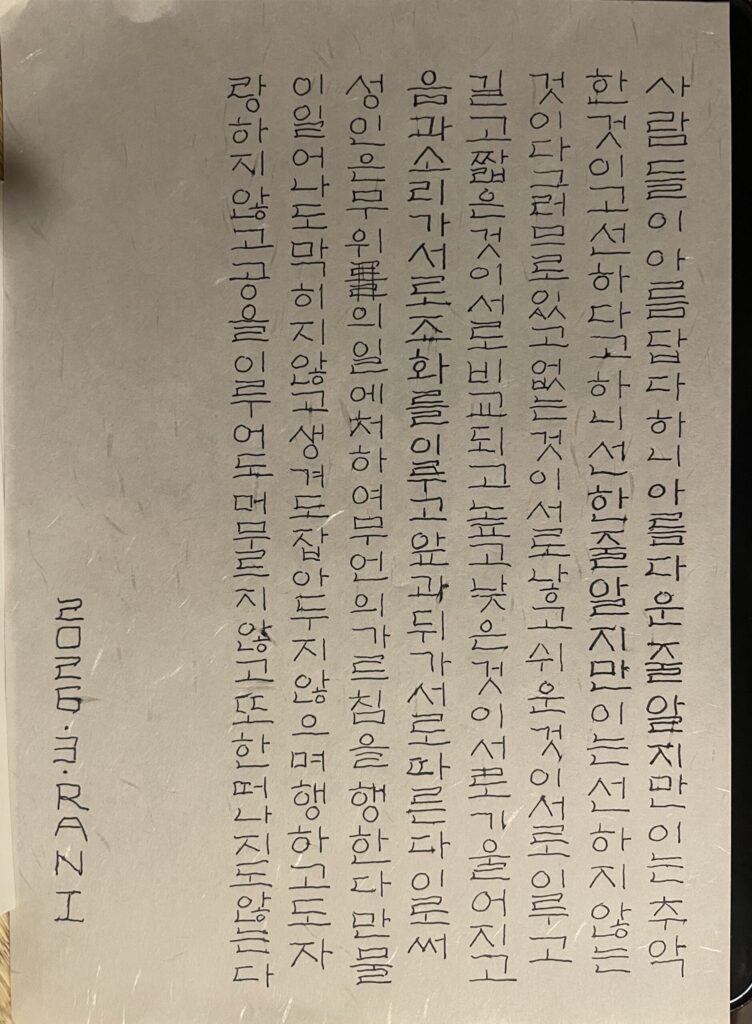 사람들이아름답다하니아름다운줄알지만이는추악
한것이고선하다고하니선한줄알지만이는선하지않는
것이다그러므로있고없는것이서로낳고쉬운것이서로이루고
길고짧은것이서로비교되고높고낮은것이서로기울어지고
음과소리가서로죠화를이루고앞과뒤가서로따른다이로써
성인은무위의일에처하여무언의가르침을행한다만물
이일어나도막히지않고생겨도잡아두지않으며행하고도자
랑하지않고공을이루어도머무르지않고또한떠나지도않는다
2026.3.RANI